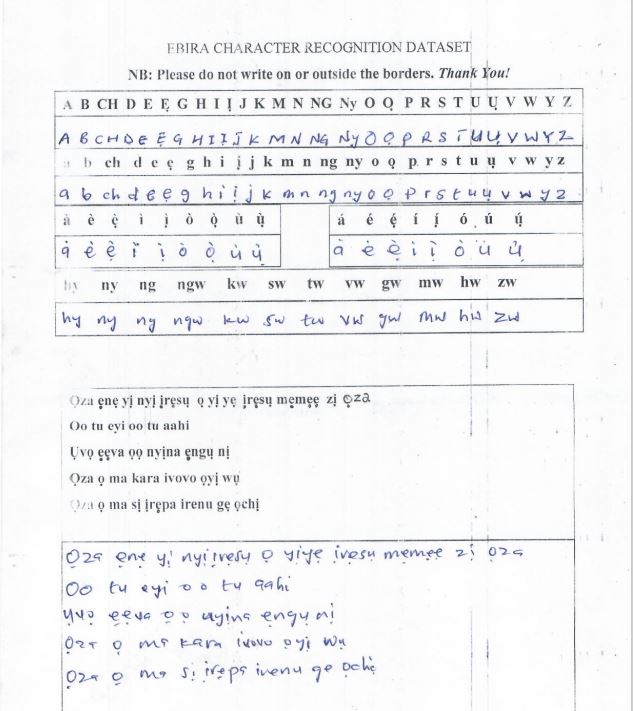 EBIRA CHARACTER RECOGNITION DATASET
NB: Please do not write on or outside the borders. Thank You!
A B CH D E Ẹ G H I Ị J K M N NG Ny O Ọ P R S T U Ụ V W Y Z
A B C H D E Ẹ G H I Ị J K M N NG Ny O Ọ P R S T U Ụ V W Y Z
a b ch d e ẹ g h i ị j k m n ng ny o ọ p r s t u ụ v w y z
a b ch d e ẹ g h i ị j k m n ng ny o ọ p r s t u ụ v w y z
à è ẹ̀ ì ị̀ ò ọ̀ ù ụ̀ á é ẹ́ í ị́ ó ú ụ́
à è ẹ̀ ì ị̀ ò ọ̀ ù ụ̀ à è ẹ̀ ì ị̀ ò ù ụ̀
hy ny ng ngw kw sw tw vw gw mw hw zw
hy ny ng ngw kw sw tw vw gw mw hw zw
Ọza ẹnẹ yị nyị ịrẹsụ ọ yị yẹ ịrẹsụ mẹmẹẹ zị ọza
Oo tu eyi oo tu aahi
Ụvọ ẹẹva ọọ nyịna ẹngụ nị
Ọza ọ ma kara ivovo ọyị wụ
Ọza ọ ma sị ịrẹpa irenu gẹ ọchị
Ọza ẹnẹ yị nyịịresụ ọ yịyẹ irẹsụ mẹmẹẹ zị ọza
Oo tu eyi oo tu aahi
Ụvọ ẹẹva ọọ nyịna ẹngụ nị
Ọza ọ ma kara ivovo ọyị wụ
Ọza ọ ma sị ịrẹpa irenu gẹ